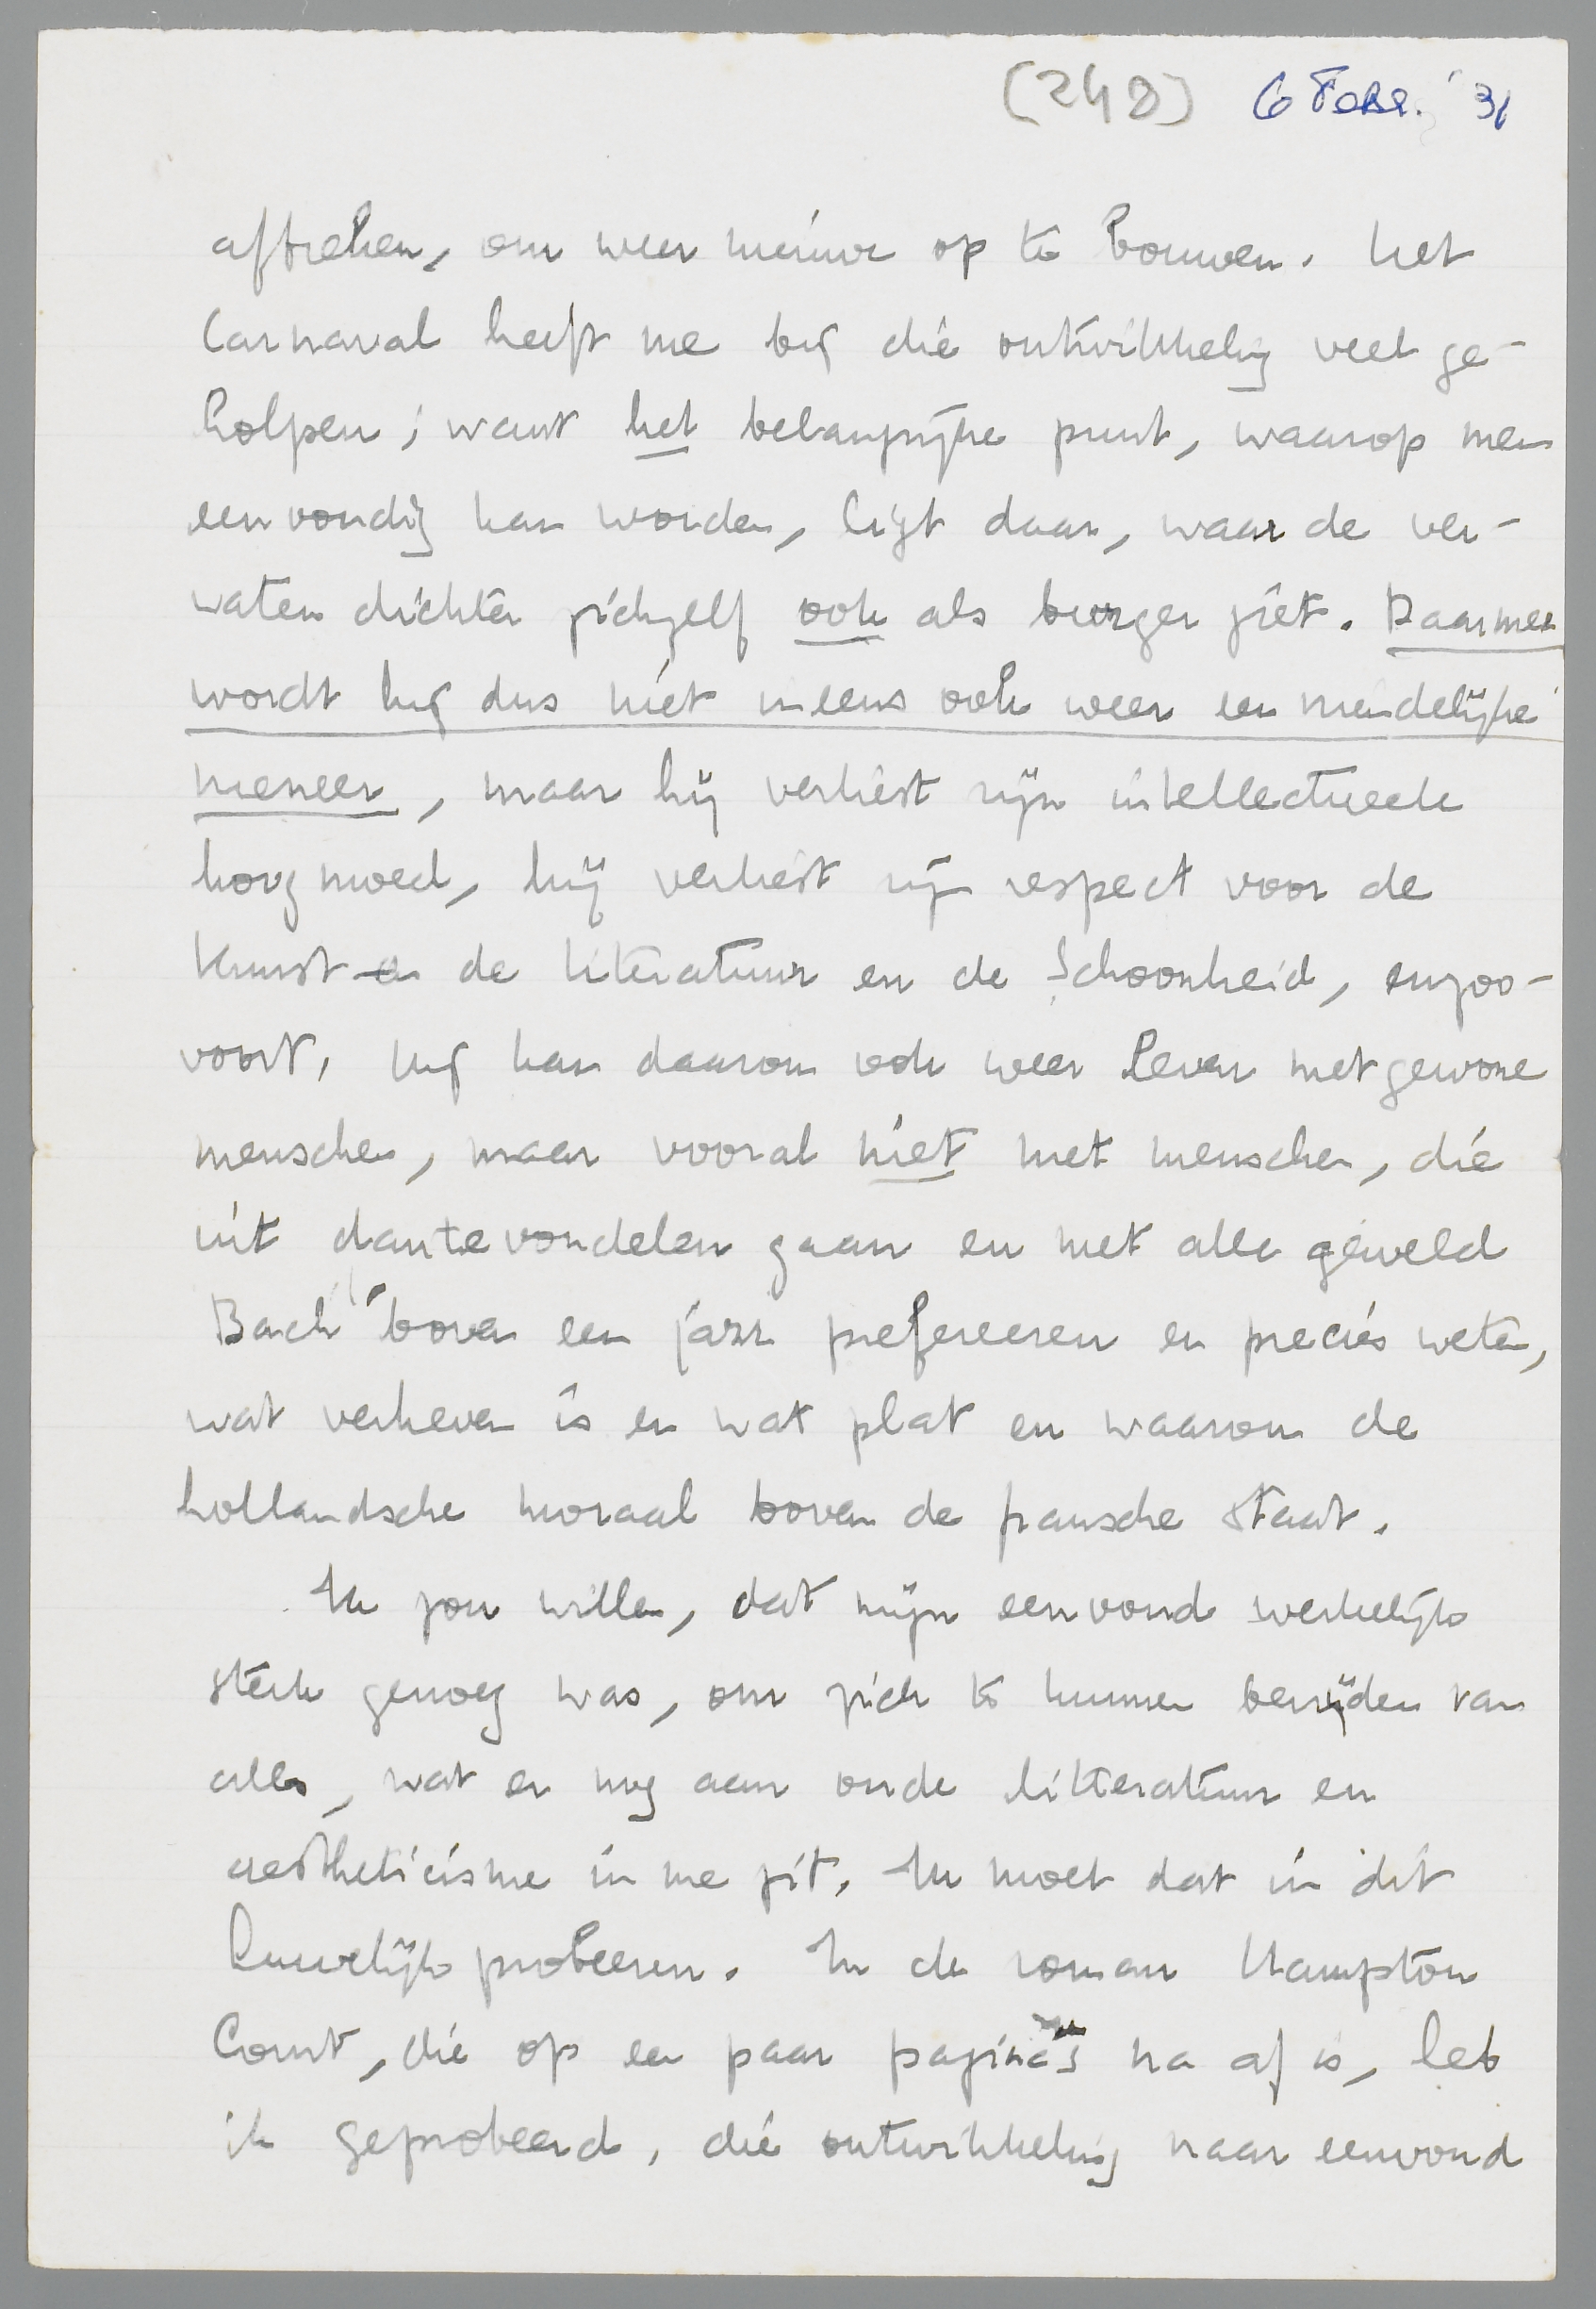 (248) 6 Febr. '31
afbreken, om weer nieuw op te bouwen. Het
Carnaval heeft me bij die ontwikkeling veel ge-
holpen; want het belangrijke punt, waarop men
eenvoudig kan worden, ligt daar, waar de ver-
waten dichter zichzelf ook als burger ziet. Daarmee
wordt hij dus niet ineens ook weer een vriendelijke
meneer, maar hij verliest zijn intellectueele
hoogmoed, hij verliest zijn respect voor de
Kunst en de literatuur en de Schoonheid, enzoo-
voort. Hij kan daarom ook weer leven met gewone
menschen, maar vooral niet met menschen, die
uit dantevondelen gaan en met alle geweld
Bach boven een jazz prefereeren en precies weten,
wat verheven is en wat plat en waarom de
hollandsche moraal boven de fransche staat.
Ik zou willen, dat mijn eenvoud werkelijk
sterk genoeg was, om zich te kunnen bevrijden van
alles, wat er nog aan oude litteratuur en
aestheticisme in me zit. Ik moet dat in dit
huwelijk probeeren. In de roman Hampton
Court, die op een paar pagina's na af is, heb
ik geprobeerd, die ontwikkeling naar eenvoud